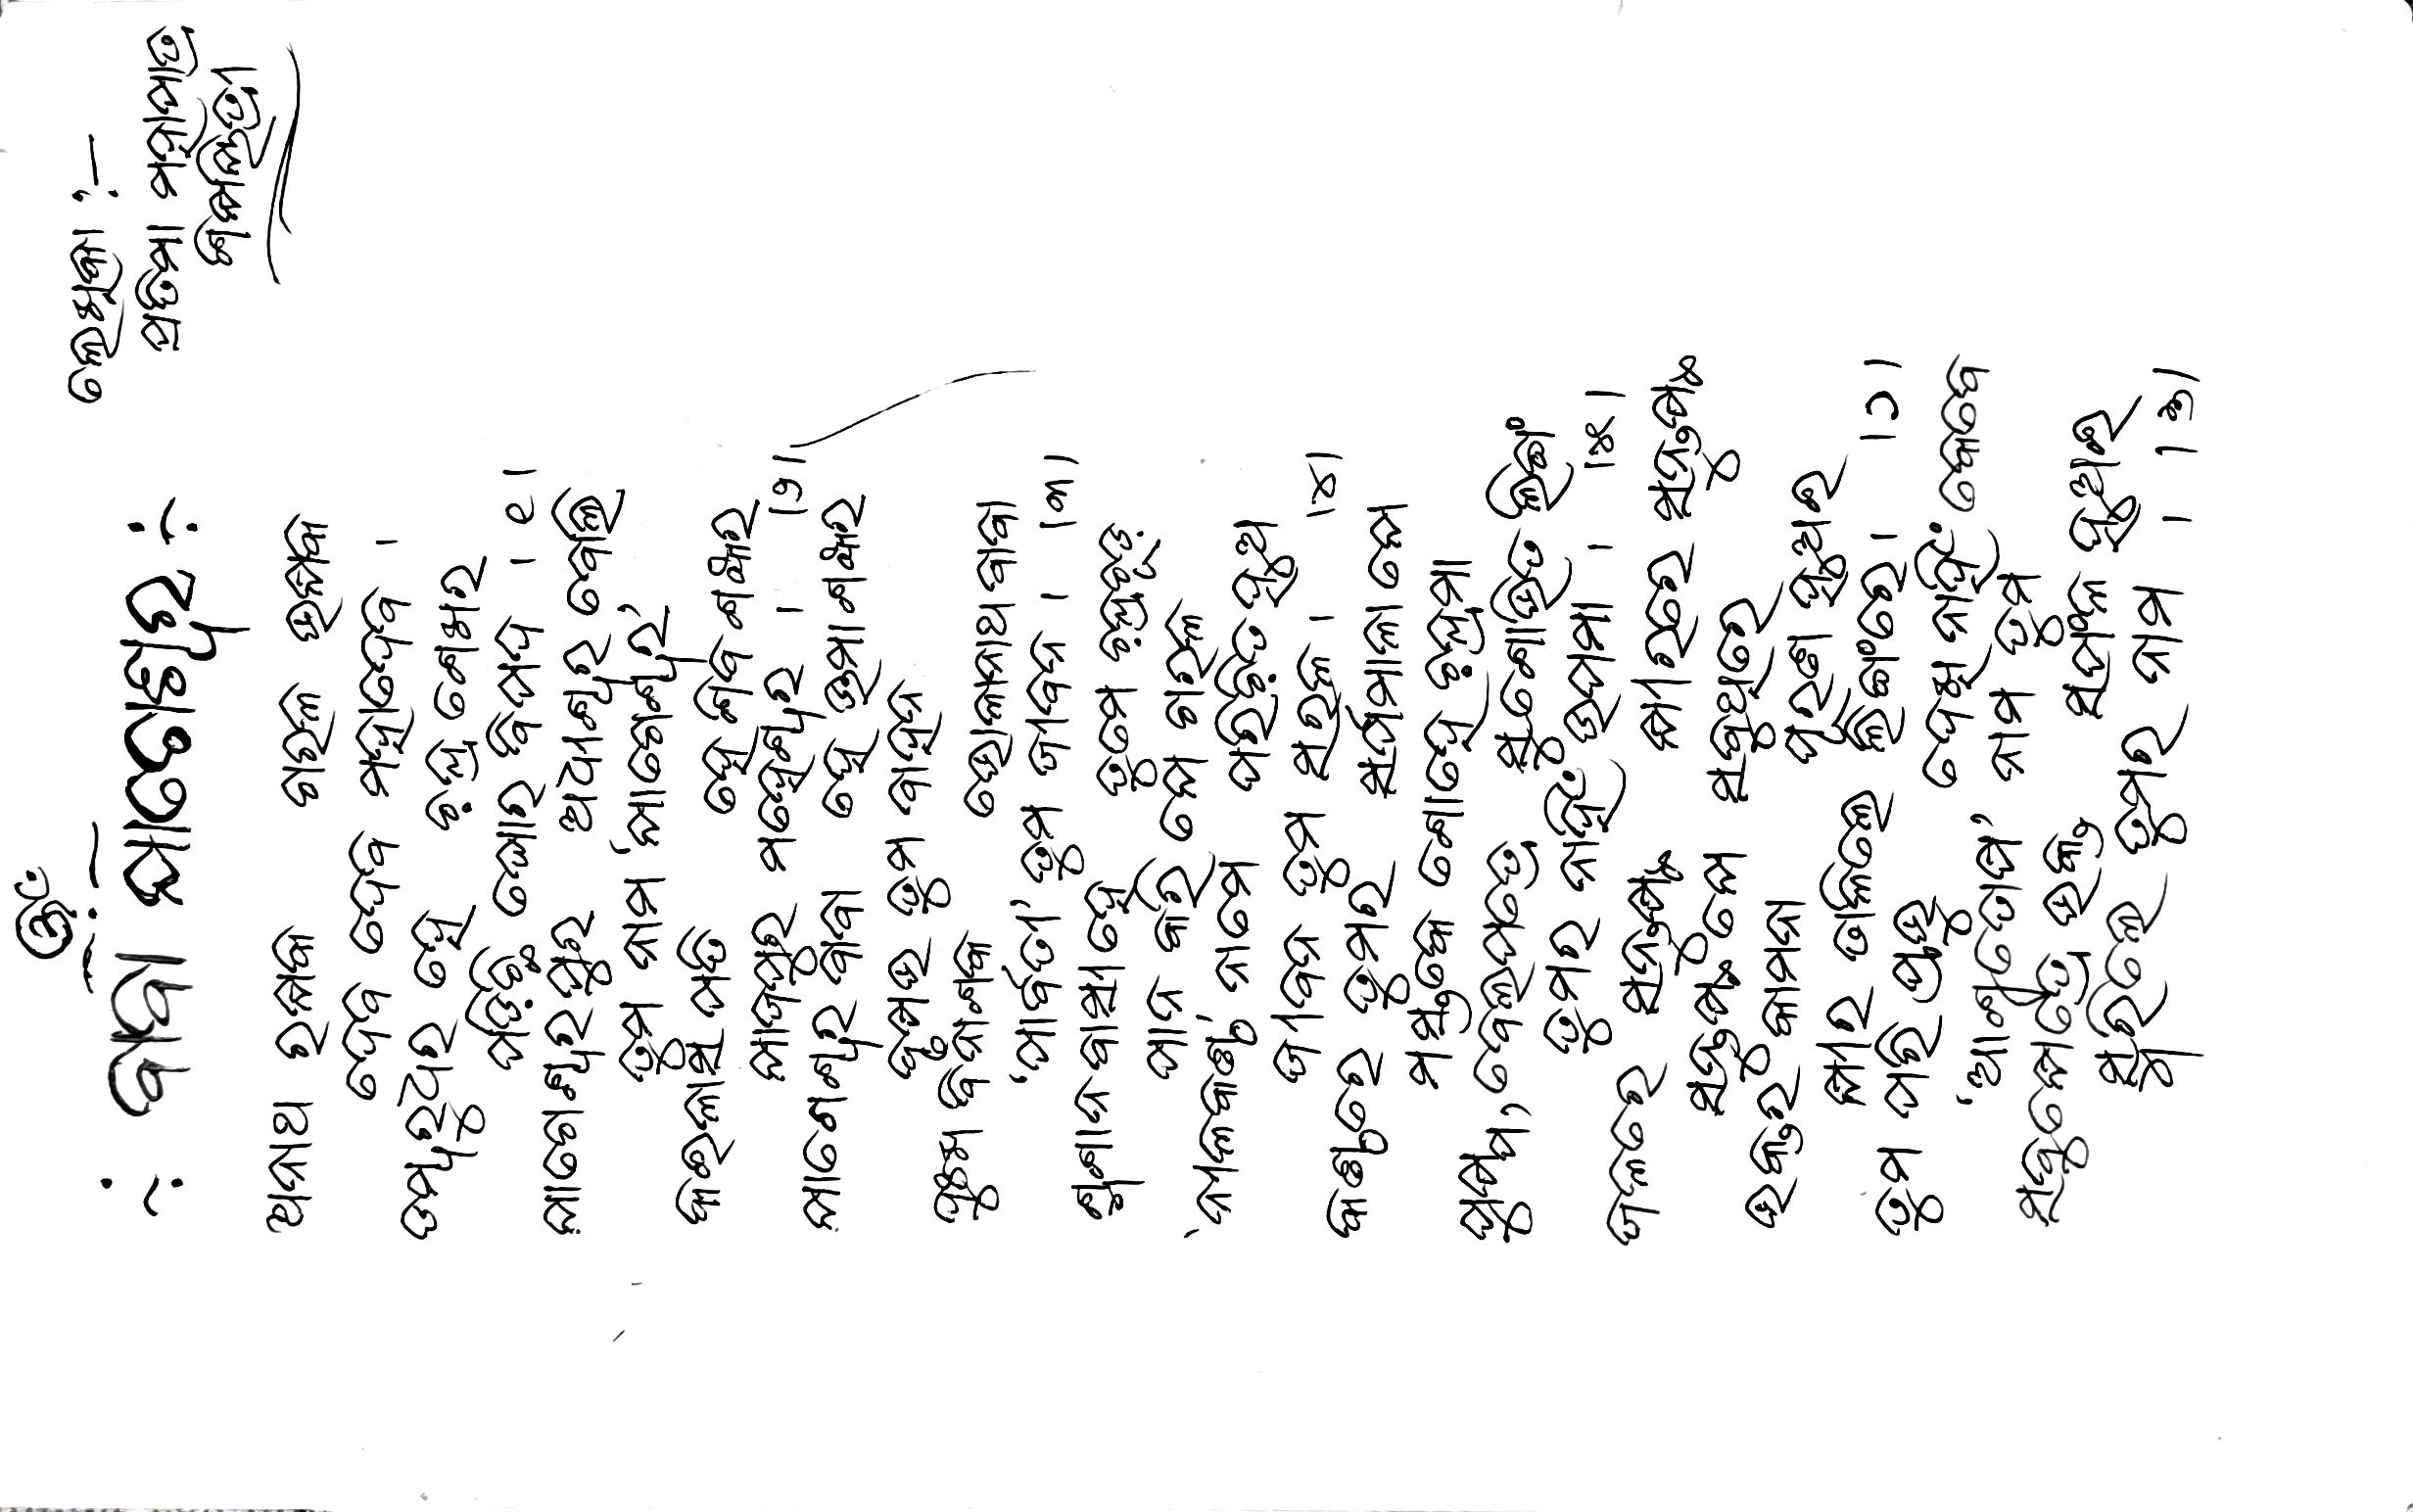 ଓଁ
ବାବା ଯାଗେଶ୍ୱର
ଲେଖିକା :-
ପ୍ରତିମା ମହାପାତ୍ର
ଶିକ୍ଷୟିତ୍ରୀ
ଅନାଥ ରକ୍ଷକ ଗରଳ ଭକ୍ଷକ
ଦେବ ଦେବ ମହାଦେବ ।
ଡମ୍ବରୁଧର ହେ ଚନ୍ଦ୍ର ଶେଖର
ପଡ଼ିଛି ଘୋର ବିପଦ । ୧।
ଯାଗେଶ୍ୱରପୁର ଅଧୀଶ୍ୱର ବୋଲି
ତୁମ ନାମ ‘ଯାଗେଶ୍ୱର’
କଇଳାସ ପତି ହେ ଶିବ ଶଙ୍କର
ଯାଜପୁର ମହେଶ୍ୱର । ।୨।
ଯାଗେଶ୍ୱର ବାବା ହେ ଉମା ଶଙ୍କର
ବୃଷଭ ତୁମ ବାହନ
ଦୁଃଖ ବିନାଶକ ଭୋଳାନାଥ ବାବା
‘ପାର୍ବତୀ’ ତୁମ ଜୀବନ । ।୩।
ଶ୍ମଶାନ ବାସୀ ହେ ତୁମେ ଚନ୍ଦ୍ରଚୂଡ଼
ପାନ କରି ଯେ ଗରଳ
‘ନୀଳକଣ୍ଠ’ ନାମେ ପରିଚିତ ହୁଅ
ଜୀବନ ତୁମ ସରଳ । ।୪।
କଣ୍ଠରେ ତୁମର ସର୍ପମାଳା ଯେ
ମସ୍ତକେ ଶୋହେ ଚନ୍ଦ୍ରମା
ପୁଷ୍ପ, ବେଲପତ୍ରେ ସୁଶୋଭିତ ଲିଙ୍ଗ
ତୁମର ନାହିଁ ଉପମା । ।୫।
ଜଳରେ ସନ୍ତୁଷ୍ଟ କ୍ଷୀରରେ ସନ୍ତୁଷ୍ଟ
ସନ୍ତୁଷ୍ଟ ଯେ ସବୁଥିରେ
ଭକ୍ତର କାମନା ପୂରଣ ହୁଅଇ
କ୍ଷୀର ଢାଳିଲେ ଲିଙ୍ଗରେ। ।୬।
ତୁମ ପରି ପ୍ରଭୁ ଦେଖି ନାହିଁ କେବେ
‘ଆଶୁତୋଷ’ ନାମ ତୁମ
ସବୁକ୍ଷେତ୍ରେ ଭକ୍ତ ସଫଳ ହୁଅଇ
ସ୍ମରିଲେ ତୁମର ନାମ । ।୭।